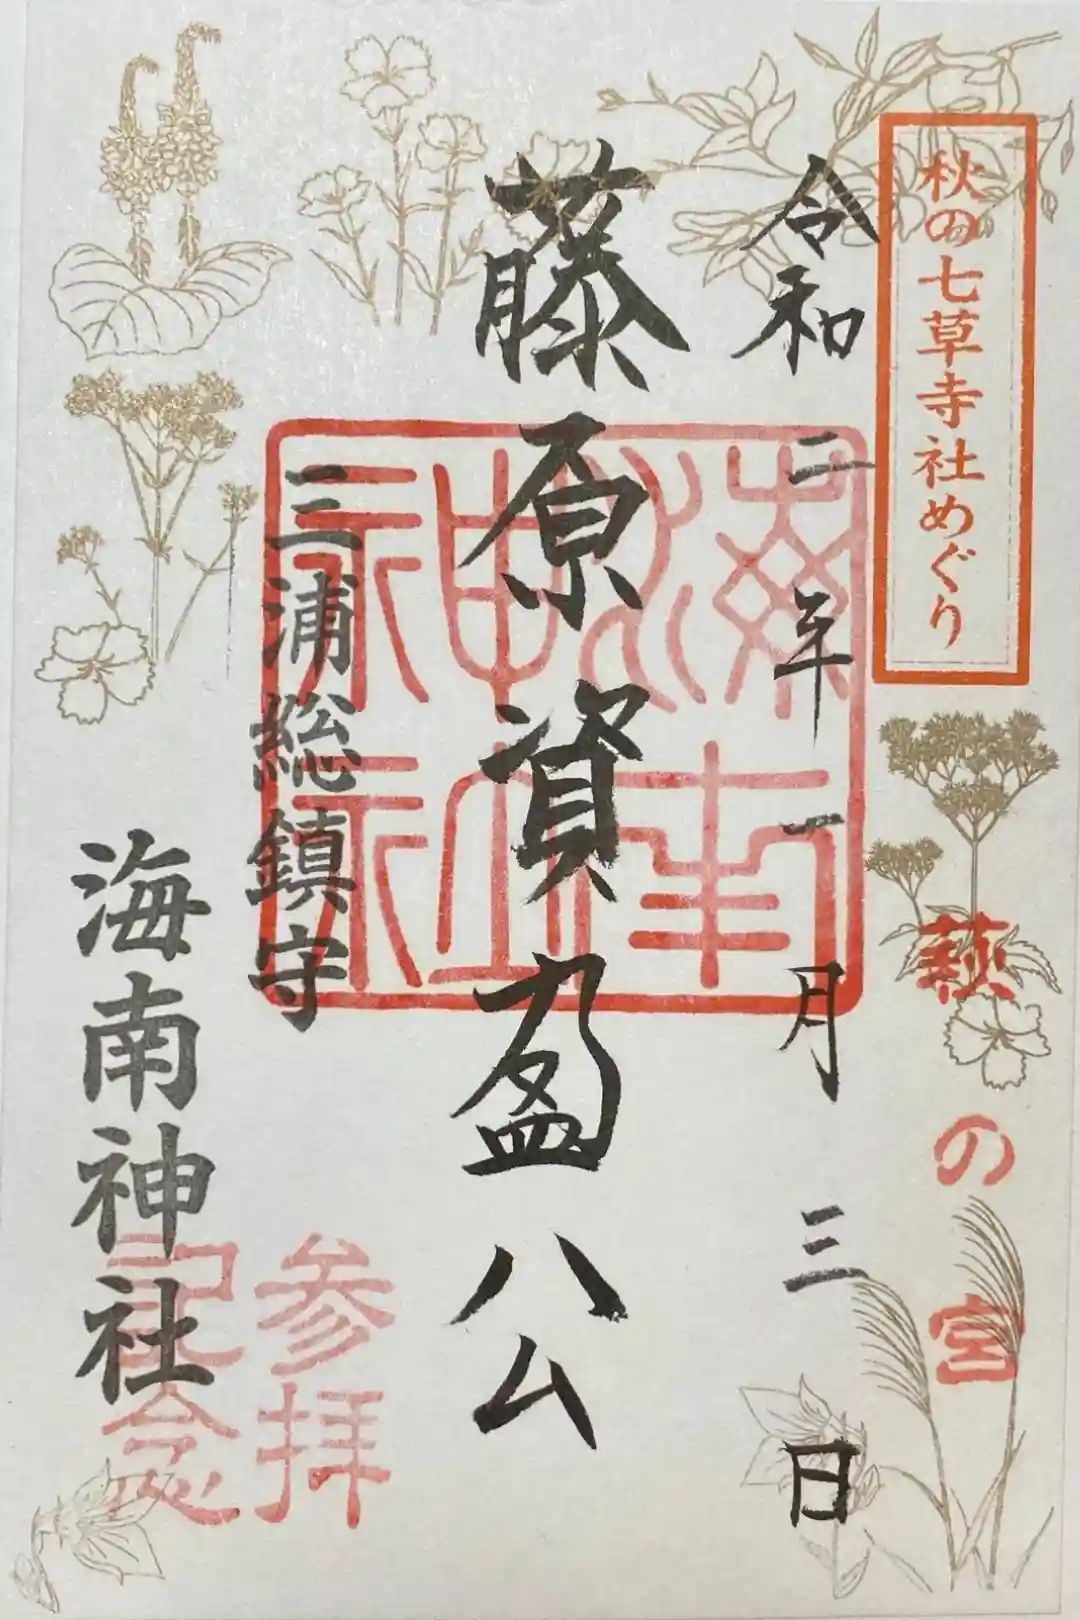 秋の七草寺社めぐり
萩の宮
令和二年一月三日
藤原資盈公
海南
神社
三浦総鎮守
参拝
記念
海南神社